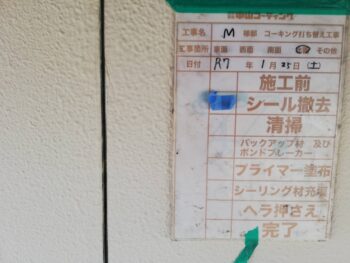 工事名 M 様邸 コーキング打ち替え工事
工事箇所 東面 西面 南面 その他
日付 R7 年 1月 25日(土)
施工前
シール撤去
清掃
バックアップ材 及び
ボンドブレーカー
プライマー塗布
シーリング材充填
ヘラ押さえ
完了